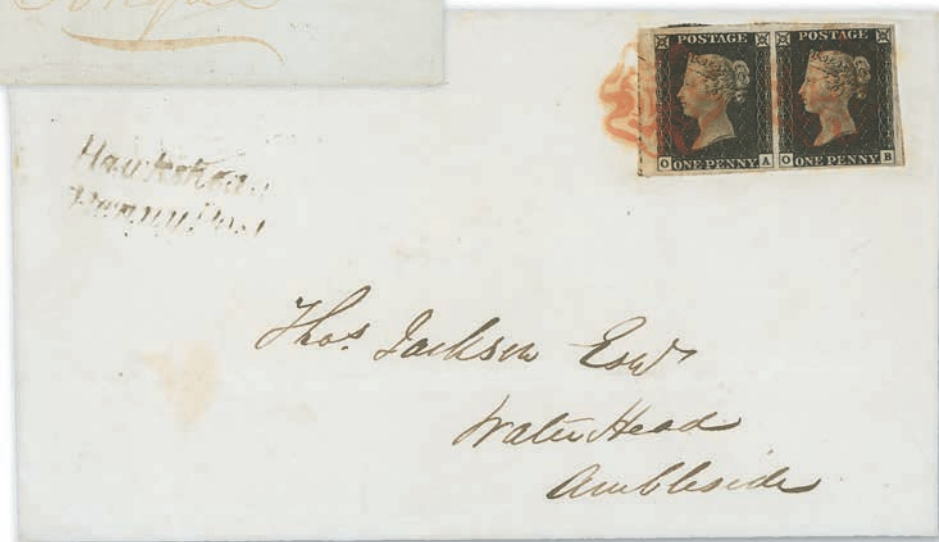 POSTAGE POSTAGE
O ONE PENNY A O ONE PENNY B
Hawkshead
Penny Post
Thos. Jackson Esqr
Water Head
Ambleside